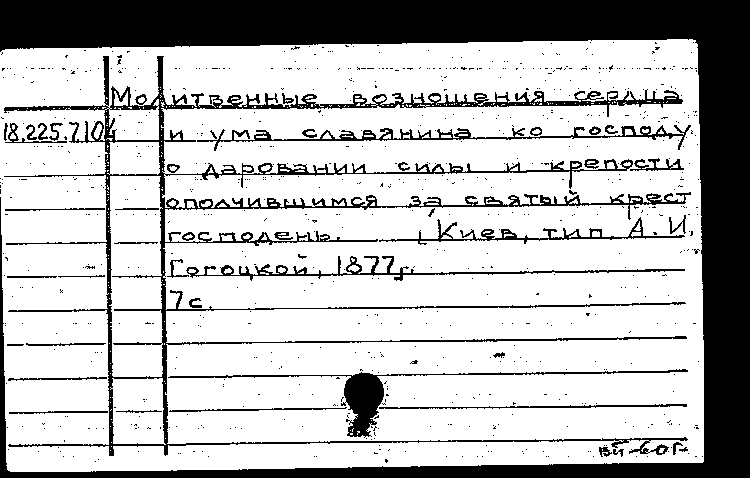 Молитвенные возношения сердца
18.225.7.104 и ума славянина ко господу
о даровании силы и крепости
ополчившимся за святый крест
господень. Киев, тип. А. И.
Гогоцкой, 1877г.
7с.